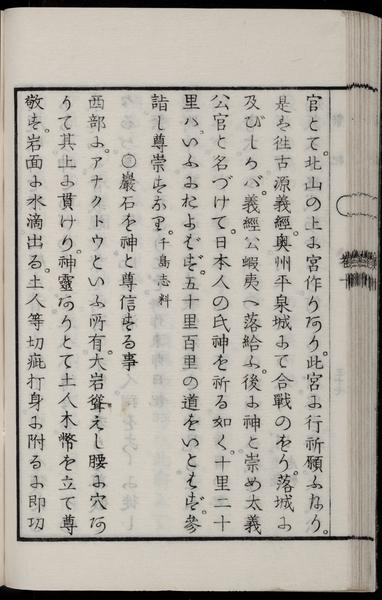 官とて。北山の上に宮作りあり。此宮に行祈願ふなり。
是を往古源義經。奥州平泉城にて合戰のをり。落城に
及びしらば。義經公蝦夷へ落給ふ。後に神と崇め太義
公官と名づけて。日本人の氏神を祈る如く。十里二十
里ハいふにたよばず。五十里百里の道をいとはず。參
詣し尊崇すなり。千島志料
◯巖石を神と尊信する事
西部に。アナクトウといふ所有。大岩聳えし腰に穴あ
りて其上に貫けり。神靈ありとて土人木幣を立て尊
敬す。岩面に水滴出る。土人等切疵打身に附るに即功